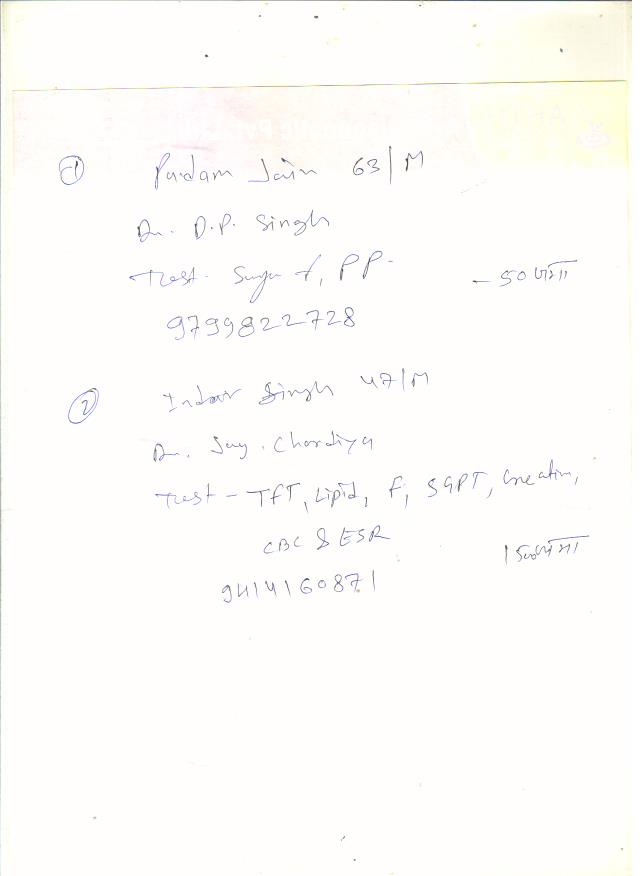 ① Padam Jain 63/M
Dr. D.P. Singh
Test - Sugar f, PP -
- 50 जमा
9799822728
② Indar Singh 47/M
Dr. Jay. Chordiya
Test - TFT, Lipid, F, SGPT, Creatin,
CBC & ESR
जमा
9414160871